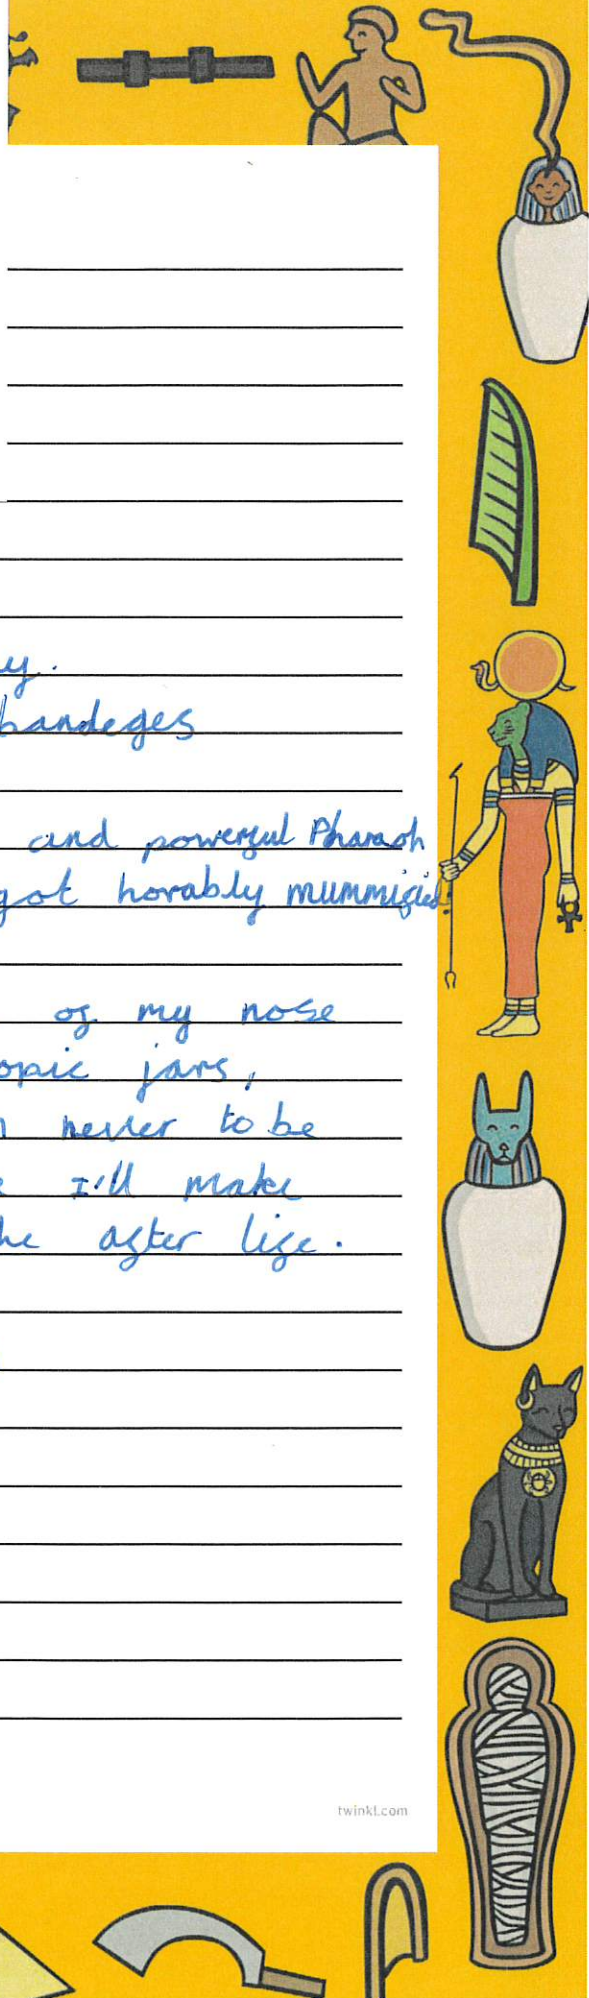 y.
bandeges
and powerful Pharaoh
got horably mummified
of my nose
opic jars,
never to be
I'll make
he after life.
twinkl.com